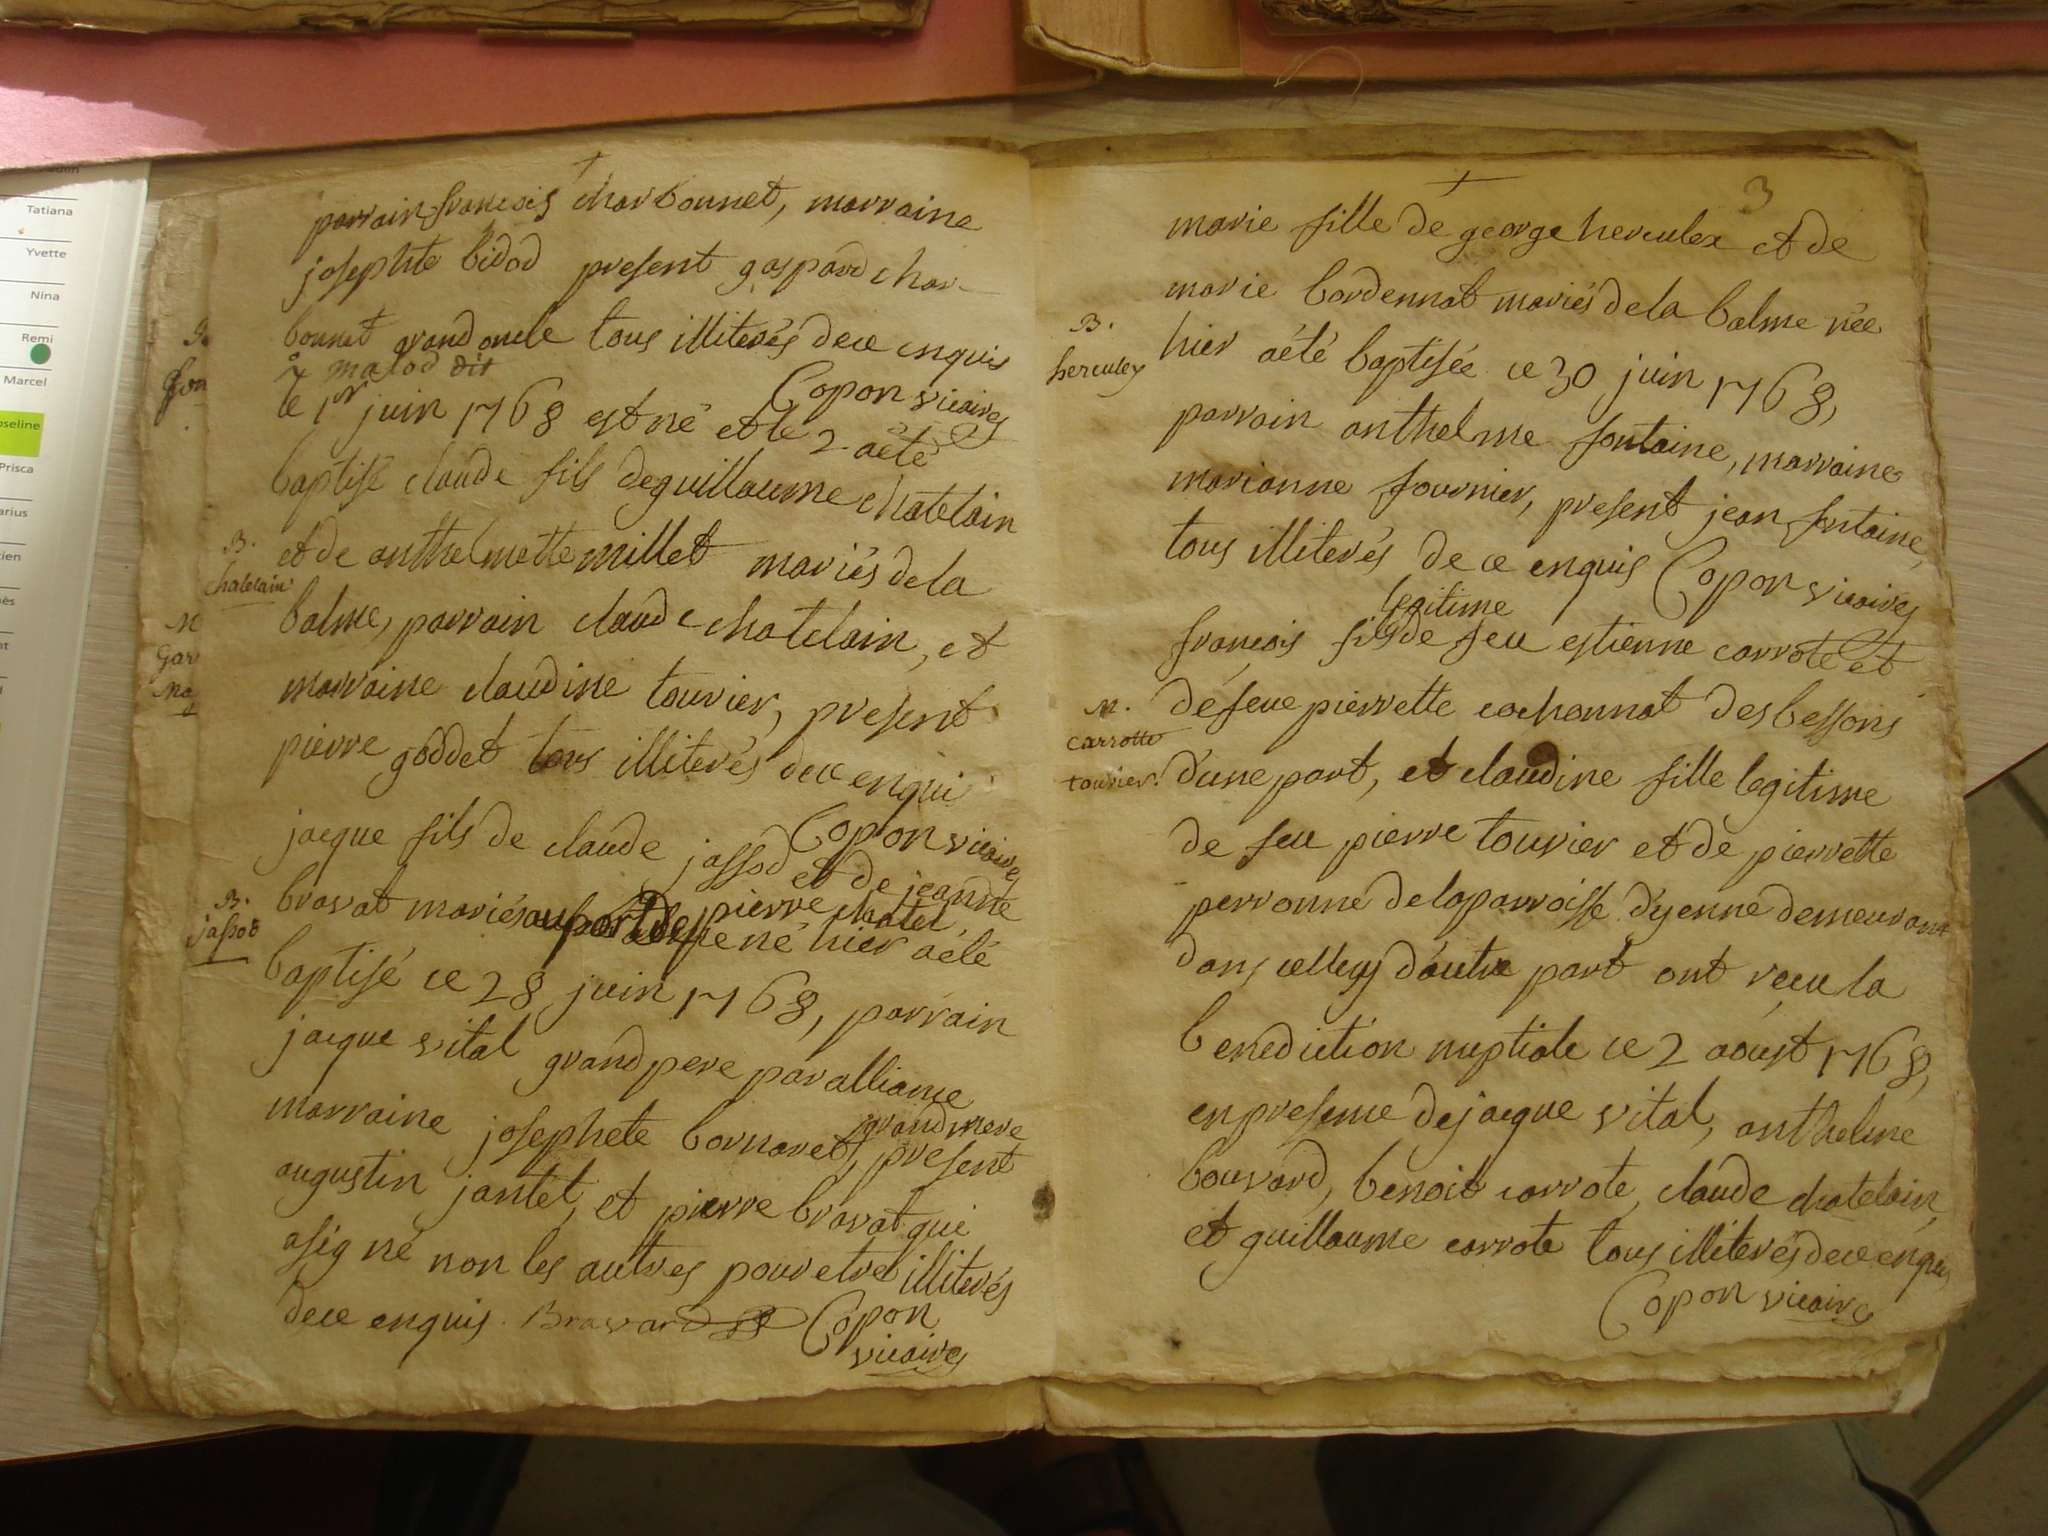 Tatiana
Yvette
Nina
Remi
Marcel
oseline
Prisca
arius
parrain françois charbonnet, marraine
josephte bidod present gaspard char-
bonnet grand oncle tous illiterés de ce enquis
malod dit
Copon vicaire
le 1er juin 1768 est né et le 2 aété
baptisé claude fils de guillaume chatelain
B.
chatelain
et de anthelmette millet mariés de la
balme, parrain claude chatelain, et
marraine claudine touvier, present
pierre goddet tous illiterés de ce enqui
Copon vicaire
jacque fils de claude jassod et de jeanne
B.
jassod
bravat mariés au port de pierre chatel,
né hier aété
baptisé ce 28 juin 1768, parrain
jacque vital grand pere par alliance
marraine josephete bornaret, grand mere
present
augustin jantet, et pierre bravat qui
asigné non les autres pour etre illiterés
de ce enquis. Bravard Copon
vicaire
3
marie fille de george herculex et de
marie bordennat mariés de la balme née
B.
herculex
hier aété baptisée ce 30 juin 1768,
parrain anthelme fontaine, marraine
marianne fournier, present jean fontaine,
tous illiterés de ce enquis Copon vicaire
legitime
françois fils de feu estienne carrote et
M.
carrotte
touvier.
défeue pierrette cochonnat des bessons
d'une part, et claudine fille legitime
de feu pierre touvier et de pierrette
perronne de la parroisse d'yenne demeurant
dans cellecy d'autre part ont recu la
benediction nuptiale ce 2 aoust 1768,
en presence de jacque vital, anthelme
bouvard, benoit carrote, claude chatelain,
et guillaume carrote tous illiterés de ce enquis
Copon vicaire